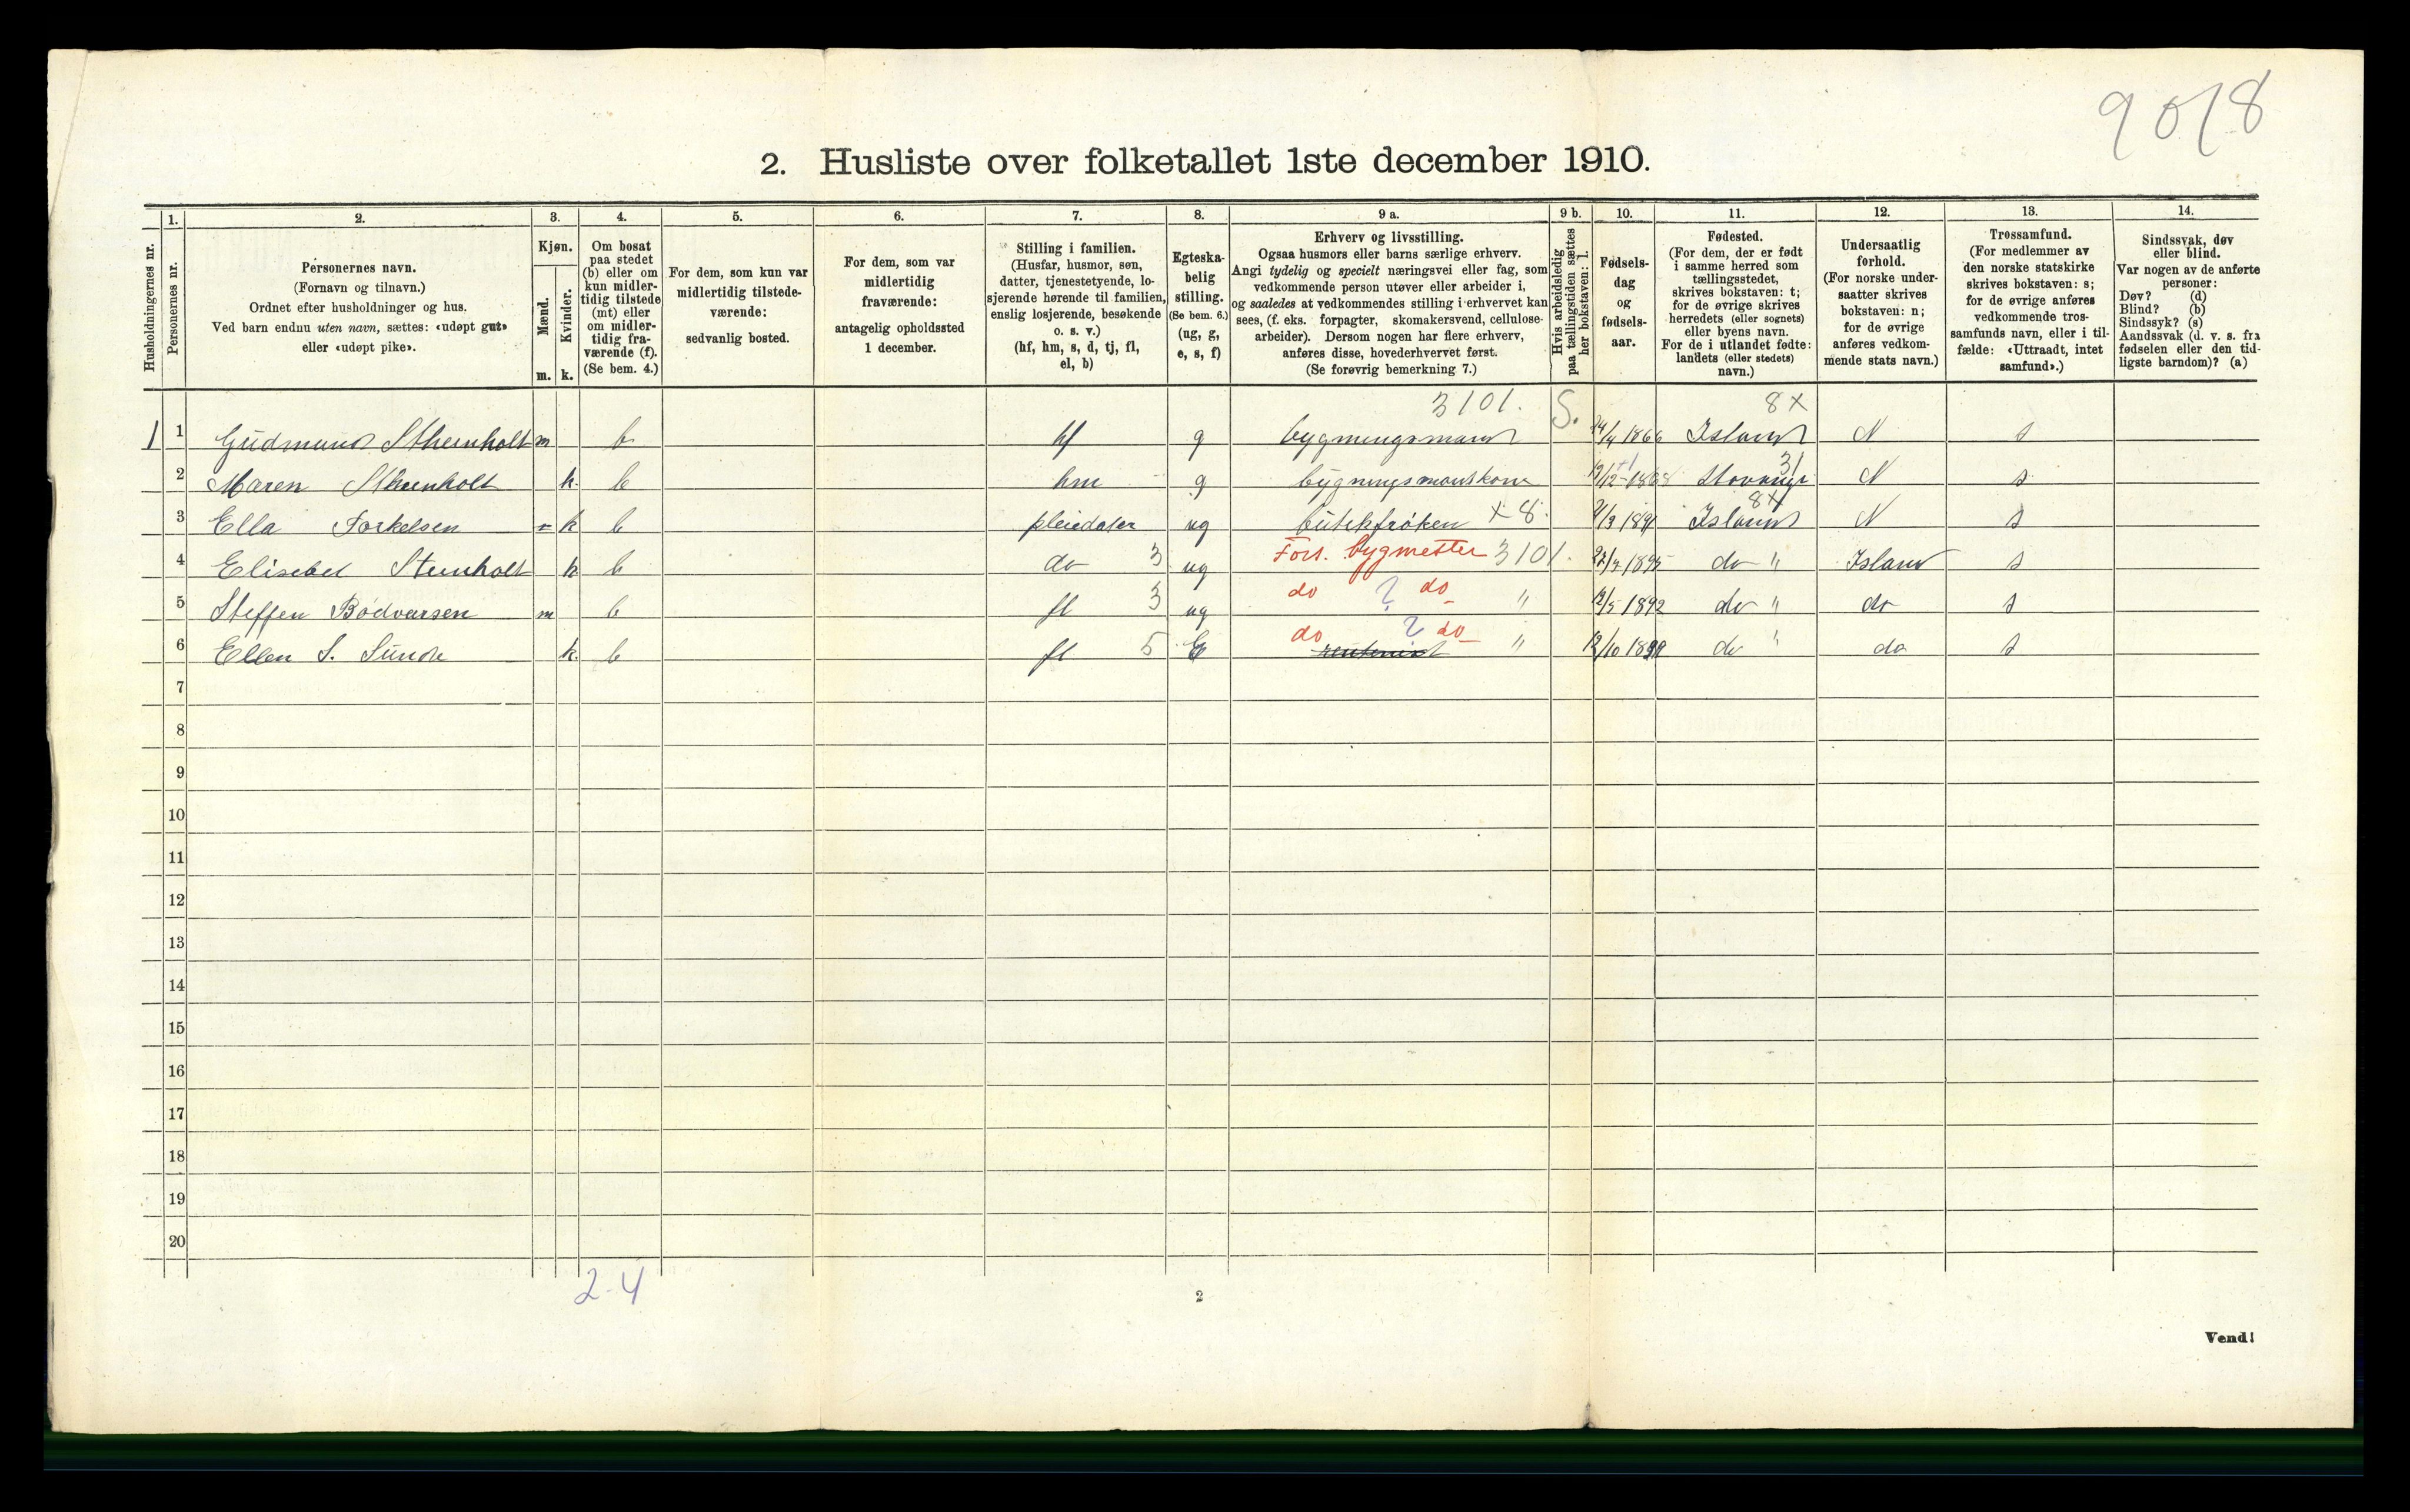 9018
2. Husliste over folketallet 1ste december 1910.
Husholdningernes nr.
1. Personernes nr.
2. Personernes navn.
(Fornavn og tilnavn.)
Ordnet efter husholdninger og hus.
Ved barn endnu uten navn, sættes: «udøpt gut»
eller «udøpt pike».
3. Kjøn.
Mænd. m.
Kvinder. k.
4. Om bosat
paa stedet
(b) eller om
kun midler-
tidig tilstede
(mt) eller
om midler-
tidig fra-
værende (f).
(Se bem. 4.)
5. For dem, som kun var
midlertidig tilstede-
værende:
sedvanlig bosted.
6. For dem, som var
midlertidig
fraværende:
antagelig opholdssted
1 december.
7. Stilling i familien.
(Husfar, husmor, søn,
datter, tjenestetyende, lo-
sjerende hørende til familien,
enslig losjerende, besøkende
o. s. v.)
(hf, hm, s, d, tj, fl,
el, b)
8. Egteska-
belig
stilling.
(Se bem. 6.)
(ug, g,
e, s, f)
9 a. Erhverv og livsstilling.
Ogsaa husmors eller barns særlige erhverv.
Angi tydelig og specielt næringsvei eller fag, som
vedkommende person utøver eller arbeider i,
og saaledes at vedkommendes stilling i erhvervet kan
sees, (f. eks. forpagter, skomakersvend, cellulose-
arbeider). Dersom nogen har flere erhverv,
anføres disse, hovederhvervet først.
(Se forøvrig bemerkning 7.)
9 b. Hvis arbeidsledig
paa tællingstiden sættes
her bokstaven: l.
10. Fødsels-
dag
og
fødsels-
aar.
11. Fødested.
(For dem, der er født
i samme herred som
tællingsstedet,
skrives bokstaven: t;
for de øvrige skrives
herredets (eller sognets)
eller byens navn.
For de i utlandet fødte:
landets (eller stedets)
navn.)
12. Undersaatlig
forhold.
(For norske under-
saatter skrives
bokstaven: n;
for de øvrige
anføres vedkom-
mende stats navn.)
13. Trossamfund.
(For medlemmer av
den norske statskirke
skrives bokstaven: s;
for de øvrige anføres
vedkommende tros-
samfunds navn, eller i til-
fælde: «Uttraadt, intet
samfund».)
14. Sindssvak, døv
eller blind.
Var nogen av de anførte
personer:
Døv? (d)
Blind? (b)
Sindssyk? (s)
Aandssvak (d. v. s. fra
fødselen eller den tid-
ligste barndom)? (a)
3101. S. 8 X
1 1 Gudmund Sthenholt m b hf g bygningsmand 24/4 1866 Island N s
31
2 Maren Sthenholt k. b hm g bygningsmanskone 1868 Stavanger N s
8 X
3 Ella Torkelsen k b pleiedater ug butikfröken X 8 1891 Island N s
4 Elisebet Stenholt k b do 3 ug Fors. bygmester 3101. 1895 do " Island s
5 Steffen Bödvarsen m b fl 3 ug do ? do " 12/5 1892 do " do s
6 Ellen S. Sunde k. b fl 5 E do ? do rentenist " 12/10 do " do s
7
8
9
10
11
12
13
14
15
16
17
18
19
20
2-4
2
Vend!